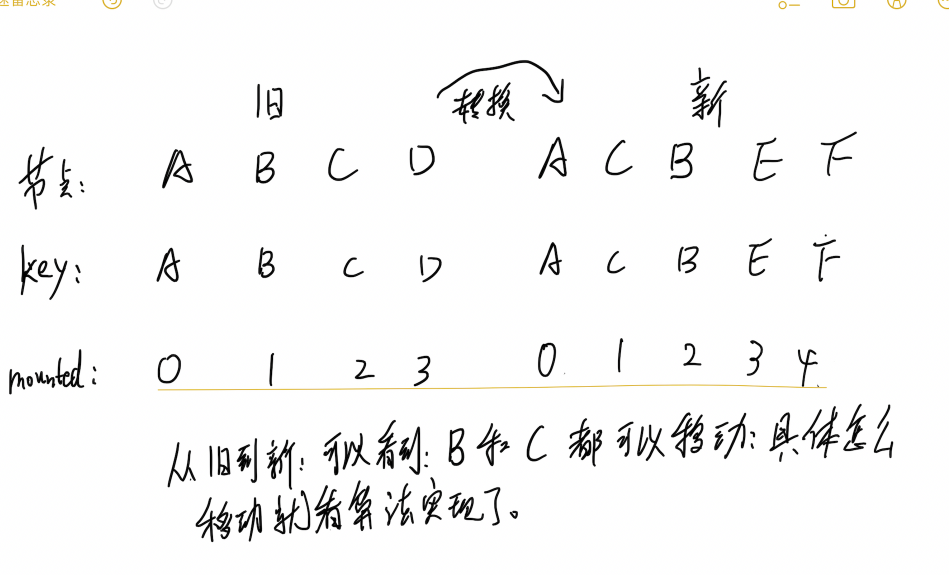 速备忘录
旧 转换 新
节点: A B C D A C B E F
key: A B C D A C B E F
mounted: 0 1 2 3 0 1 2 3 4
从旧到新: 可以看到: B和C都可以移动: 具体怎么
移动就看算法实现了。